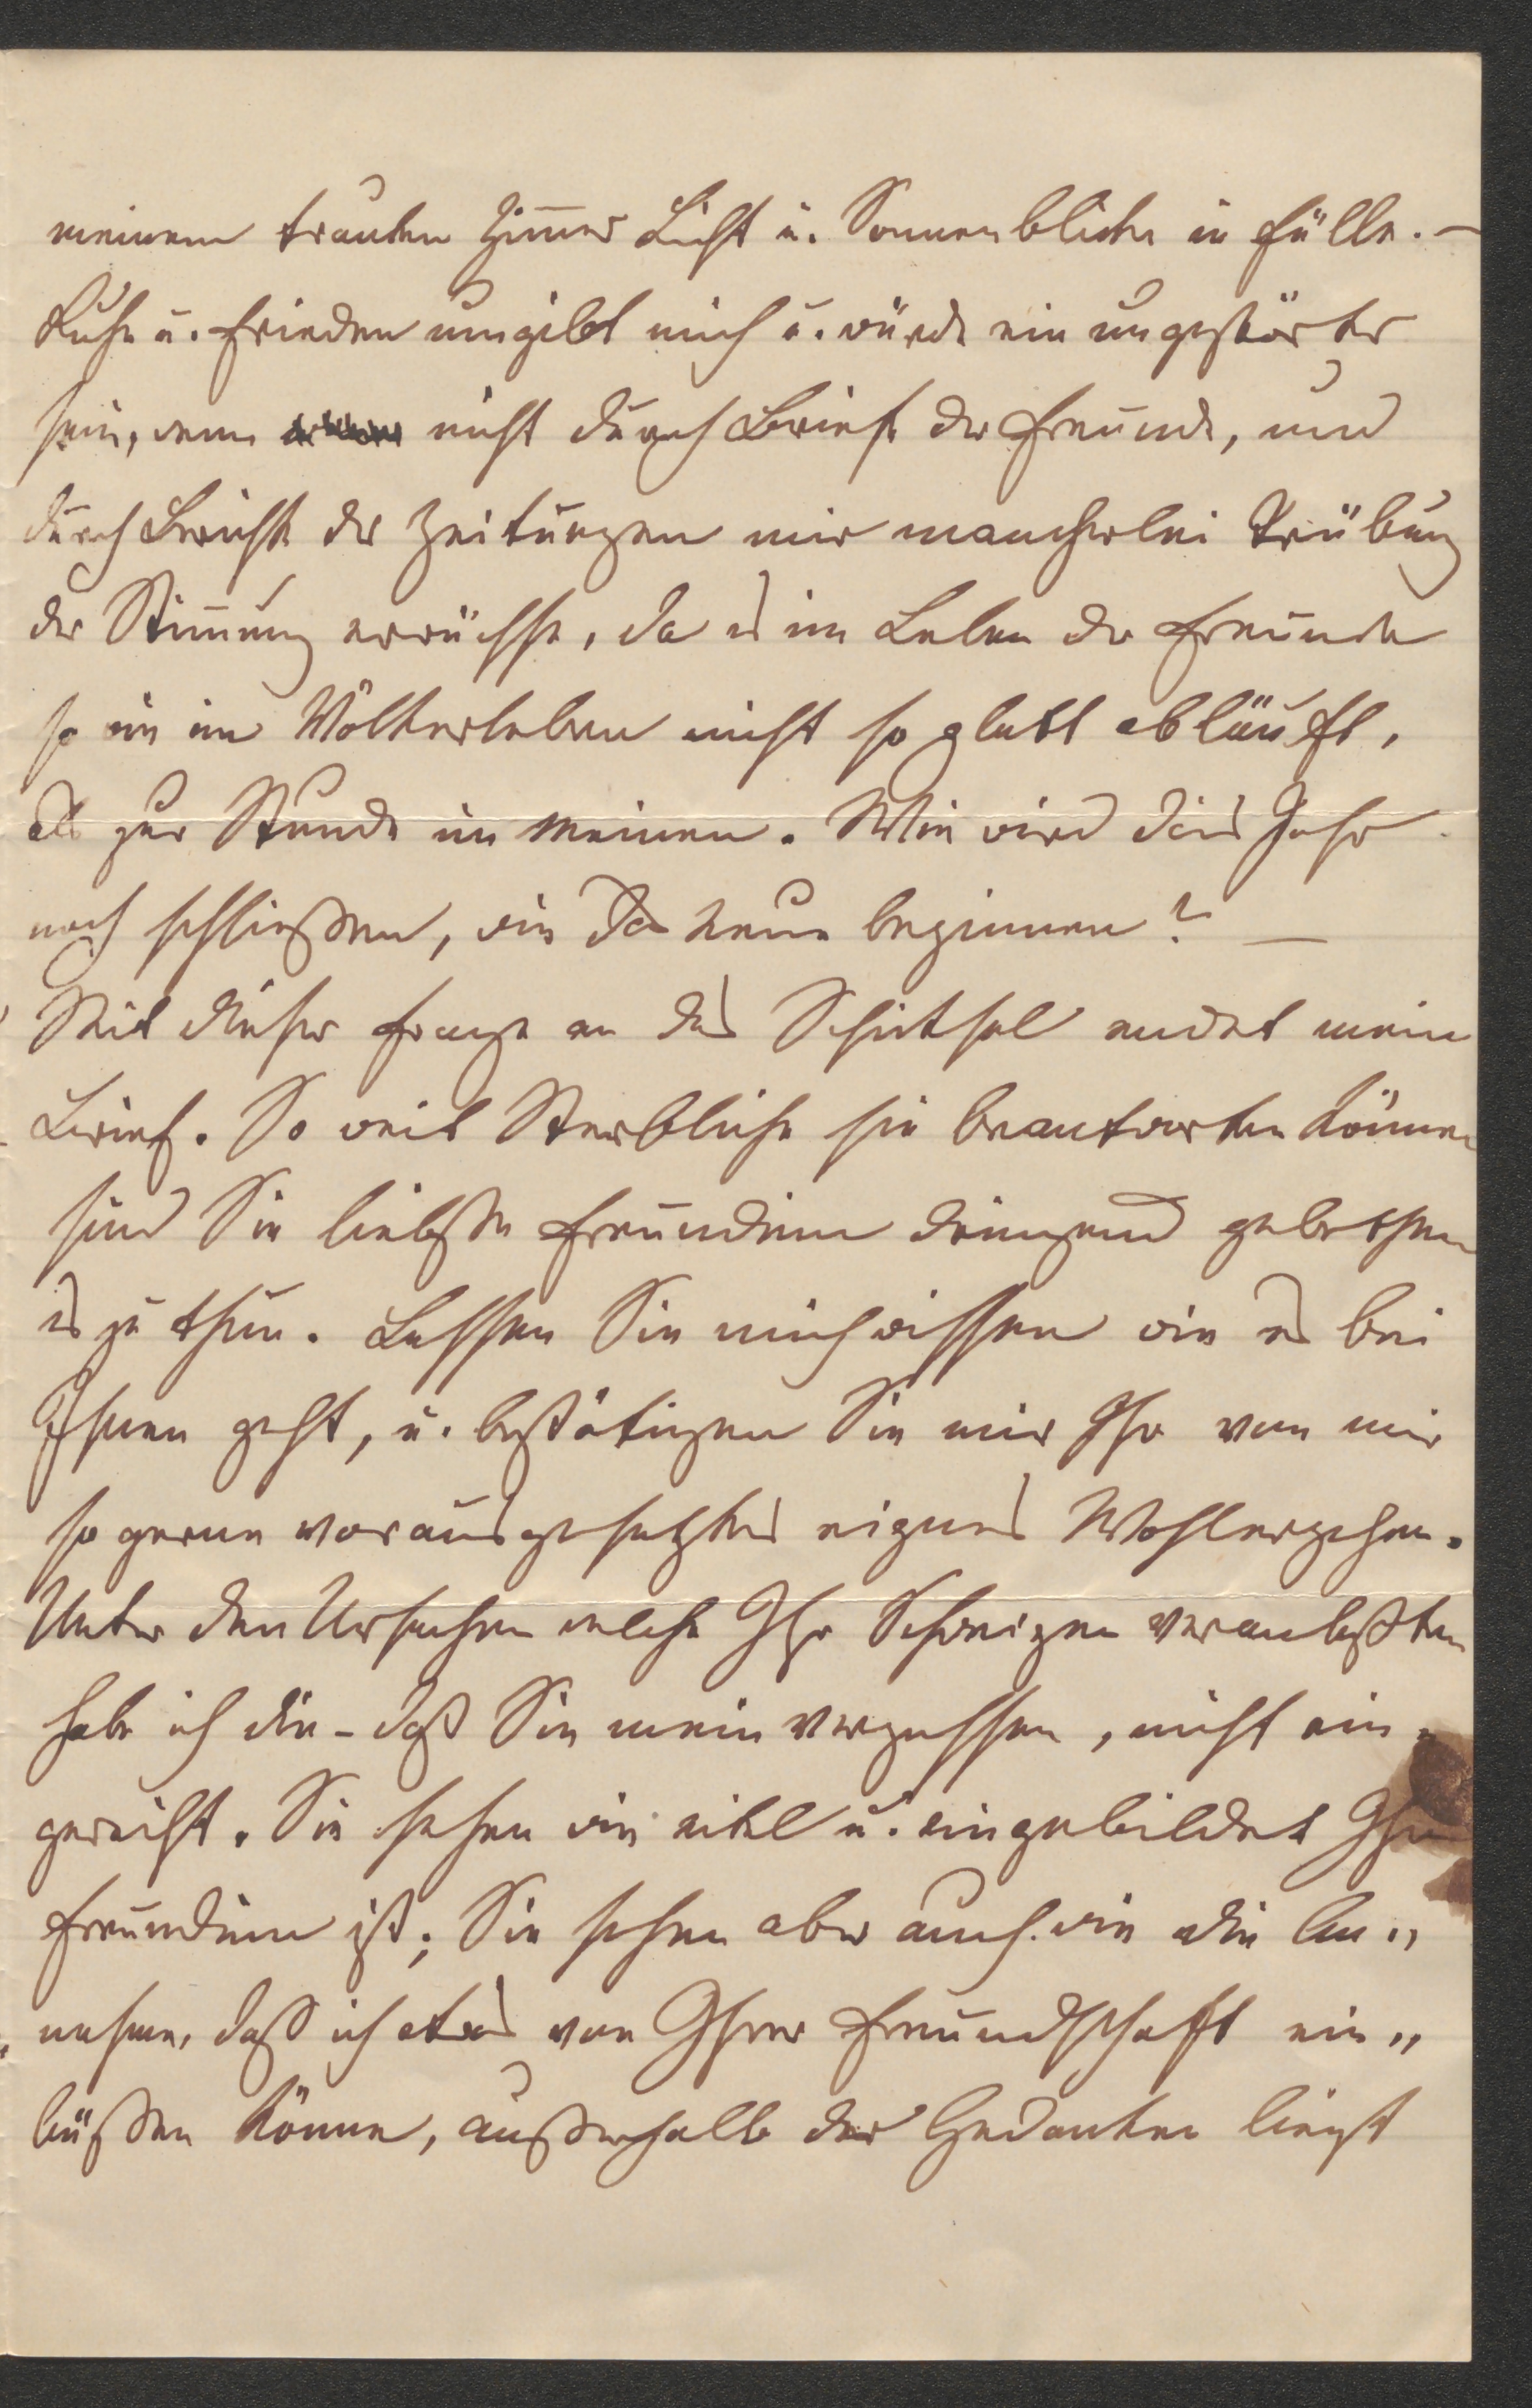 meinem trauten Zimmer Licht u. Sonnenblicke in Fülle. —
Ruhe u. Frieden umgibt mich u. würde ein ungestörter
sein, wenn nicht durch Briefe der Freunde, und
durch Berichte der Zeitungen mir mancherlei Trübung
der Stimmung erwüchse, da es im Leben der Freunde
so wie im Völkerleben nicht so glatt abläuft,
als zur Stunde im meinen. Wie wird dies Jahr
noch schließen, wie das neue beginnen? —
Mit dieser Frage an das Schicksal endet mein
Brief. So weit Sterbliche sie beantworten können
sind Sie liebste Freundinn dringend gebethen
es zu thun. Lassen Sie mich wissen wie es bei
Ihnen geht, u. bestätigen Sie mir Ihr von mir
so gerne vorausgesetztes eigenes Wohlergehen.
Unter den Ursachen welche Ihr Schweigen veranlaßten
habe ich die – daß Sie mein vergessen, nicht ein-
gereiht. Sie sehen wie eitel u. eingebildet Ihre
Freundinn ist; Sie sehen aber auch wie die An„
nahme, daß ich etwas von Ihrer Freundschaft ein„
büßen könne, außerhalb der Gedanken liegt